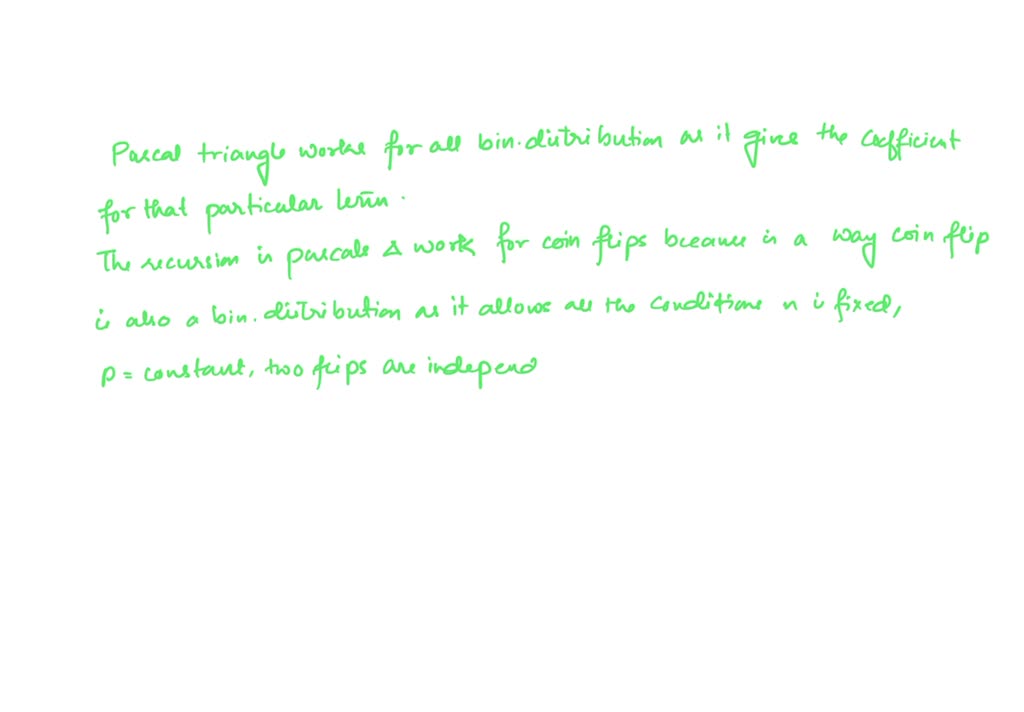 Pascal triangle works for all bin. distribution as it gives the coefficient
for that particular term.
The recursion in pascals Δ work for coin flips because in a way coin flip
is also a bin. distribution as it allows all the conditions n is fixed,
p = constant, two flips are independ